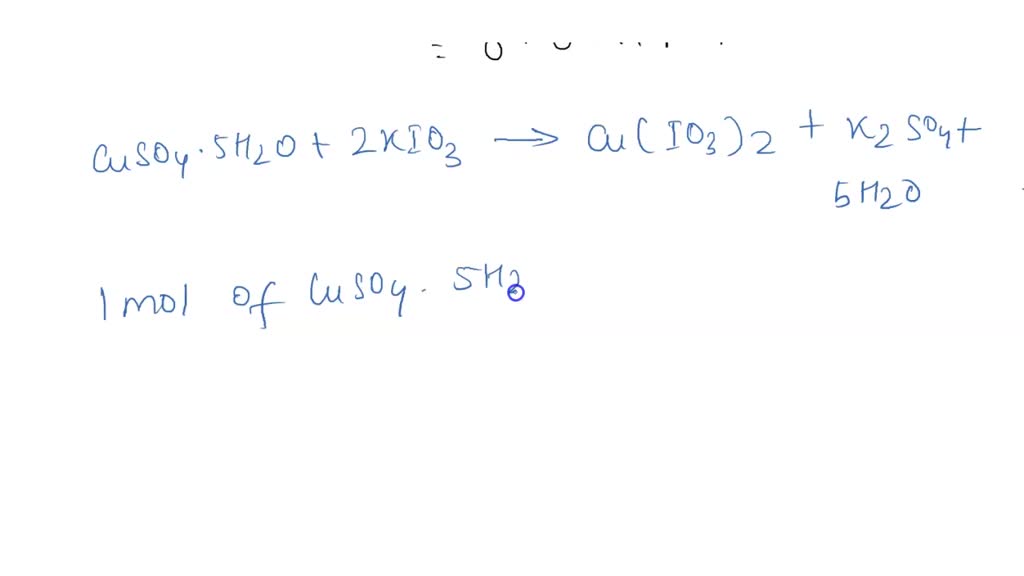 CuSO4·5H2O + 2KIO3 → Cu(IO3)2 + K2SO4 +
5H2O
1 mol of CuSO4. 5H2